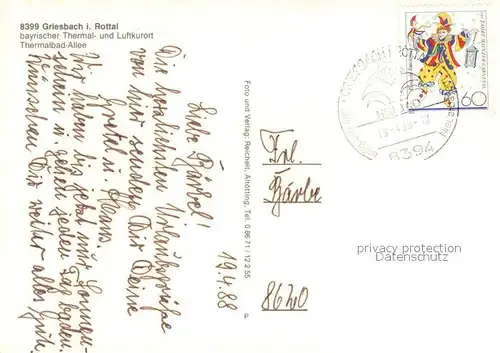 8399 Griesbach i. Rottal
bayrischer Thermal- und Luftkurort
Thermalbad-Allee
19.4.88
Liebe Bärbel!
Die herzlichsten Urlaubsgrüße
von hier senden Dir Deine
Gretel u. Hans.
Wir haben bis jetzt nur Sonnen-
schein u. gehen jeden Tag baden.
Wünschen Dir weiter alles Gute
Foto und Verlag: Reichelt, Altötting, Tel. 0 86 71 / 12 2 55
P
60
8394
Frl.
Bärbe
8620
privacy protection
Datenschutz